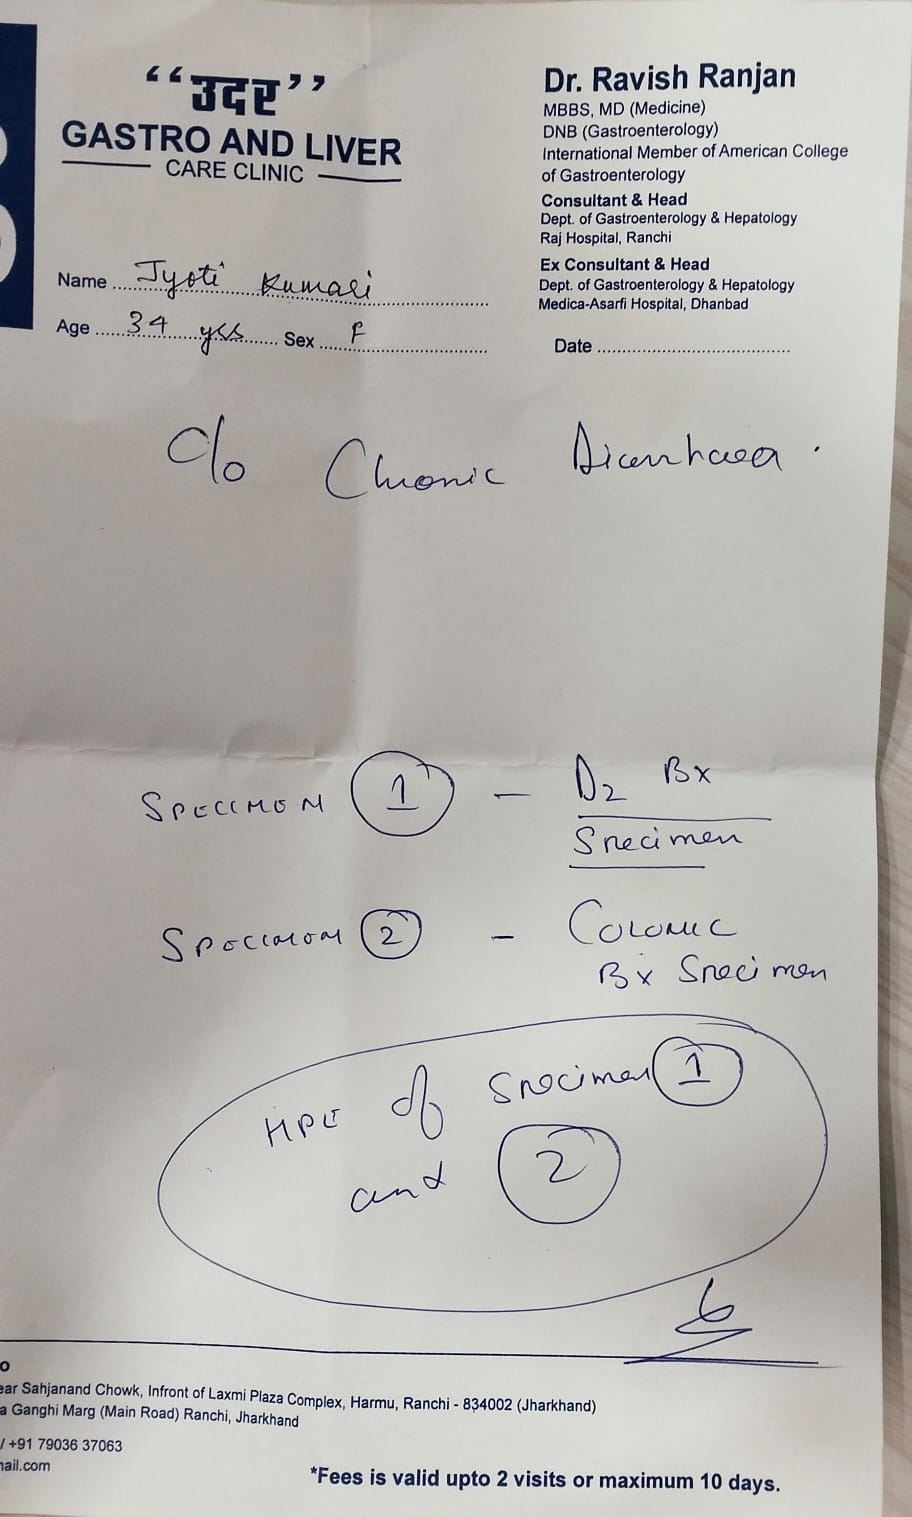 “उदर”
GASTRO AND LIVER
CARE CLINIC
Dr. Ravish Ranjan
MBBS, MD (Medicine)
DNB (Gastroenterology)
International Member of American College
of Gastroenterology
Consultant & Head
Dept. of Gastroenterology & Hepatology
Raj Hospital, Ranchi
Ex Consultant & Head
Dept. of Gastroenterology & Hepatology
Medica-Asarfi Hospital, Dhanbad
Name Jyoti Kumari
Age 34 yrs Sex F
Date
C/o Chronic Diarrhoea.
SPECIMEN 1 - D2 Bx
Specimen
SPECIMEN 2 - COLONIC
Bx Specimen
HPE of Specimen 1
and 2
ear Sahjanand Chowk, Infront of Laxmi Plaza Complex, Harmu, Ranchi - 834002 (Jharkhand)
a Ganghi Marg (Main Road) Ranchi, Jharkhand
/ +91 79036 37063
mail.com
*Fees is valid upto 2 visits or maximum 10 days.